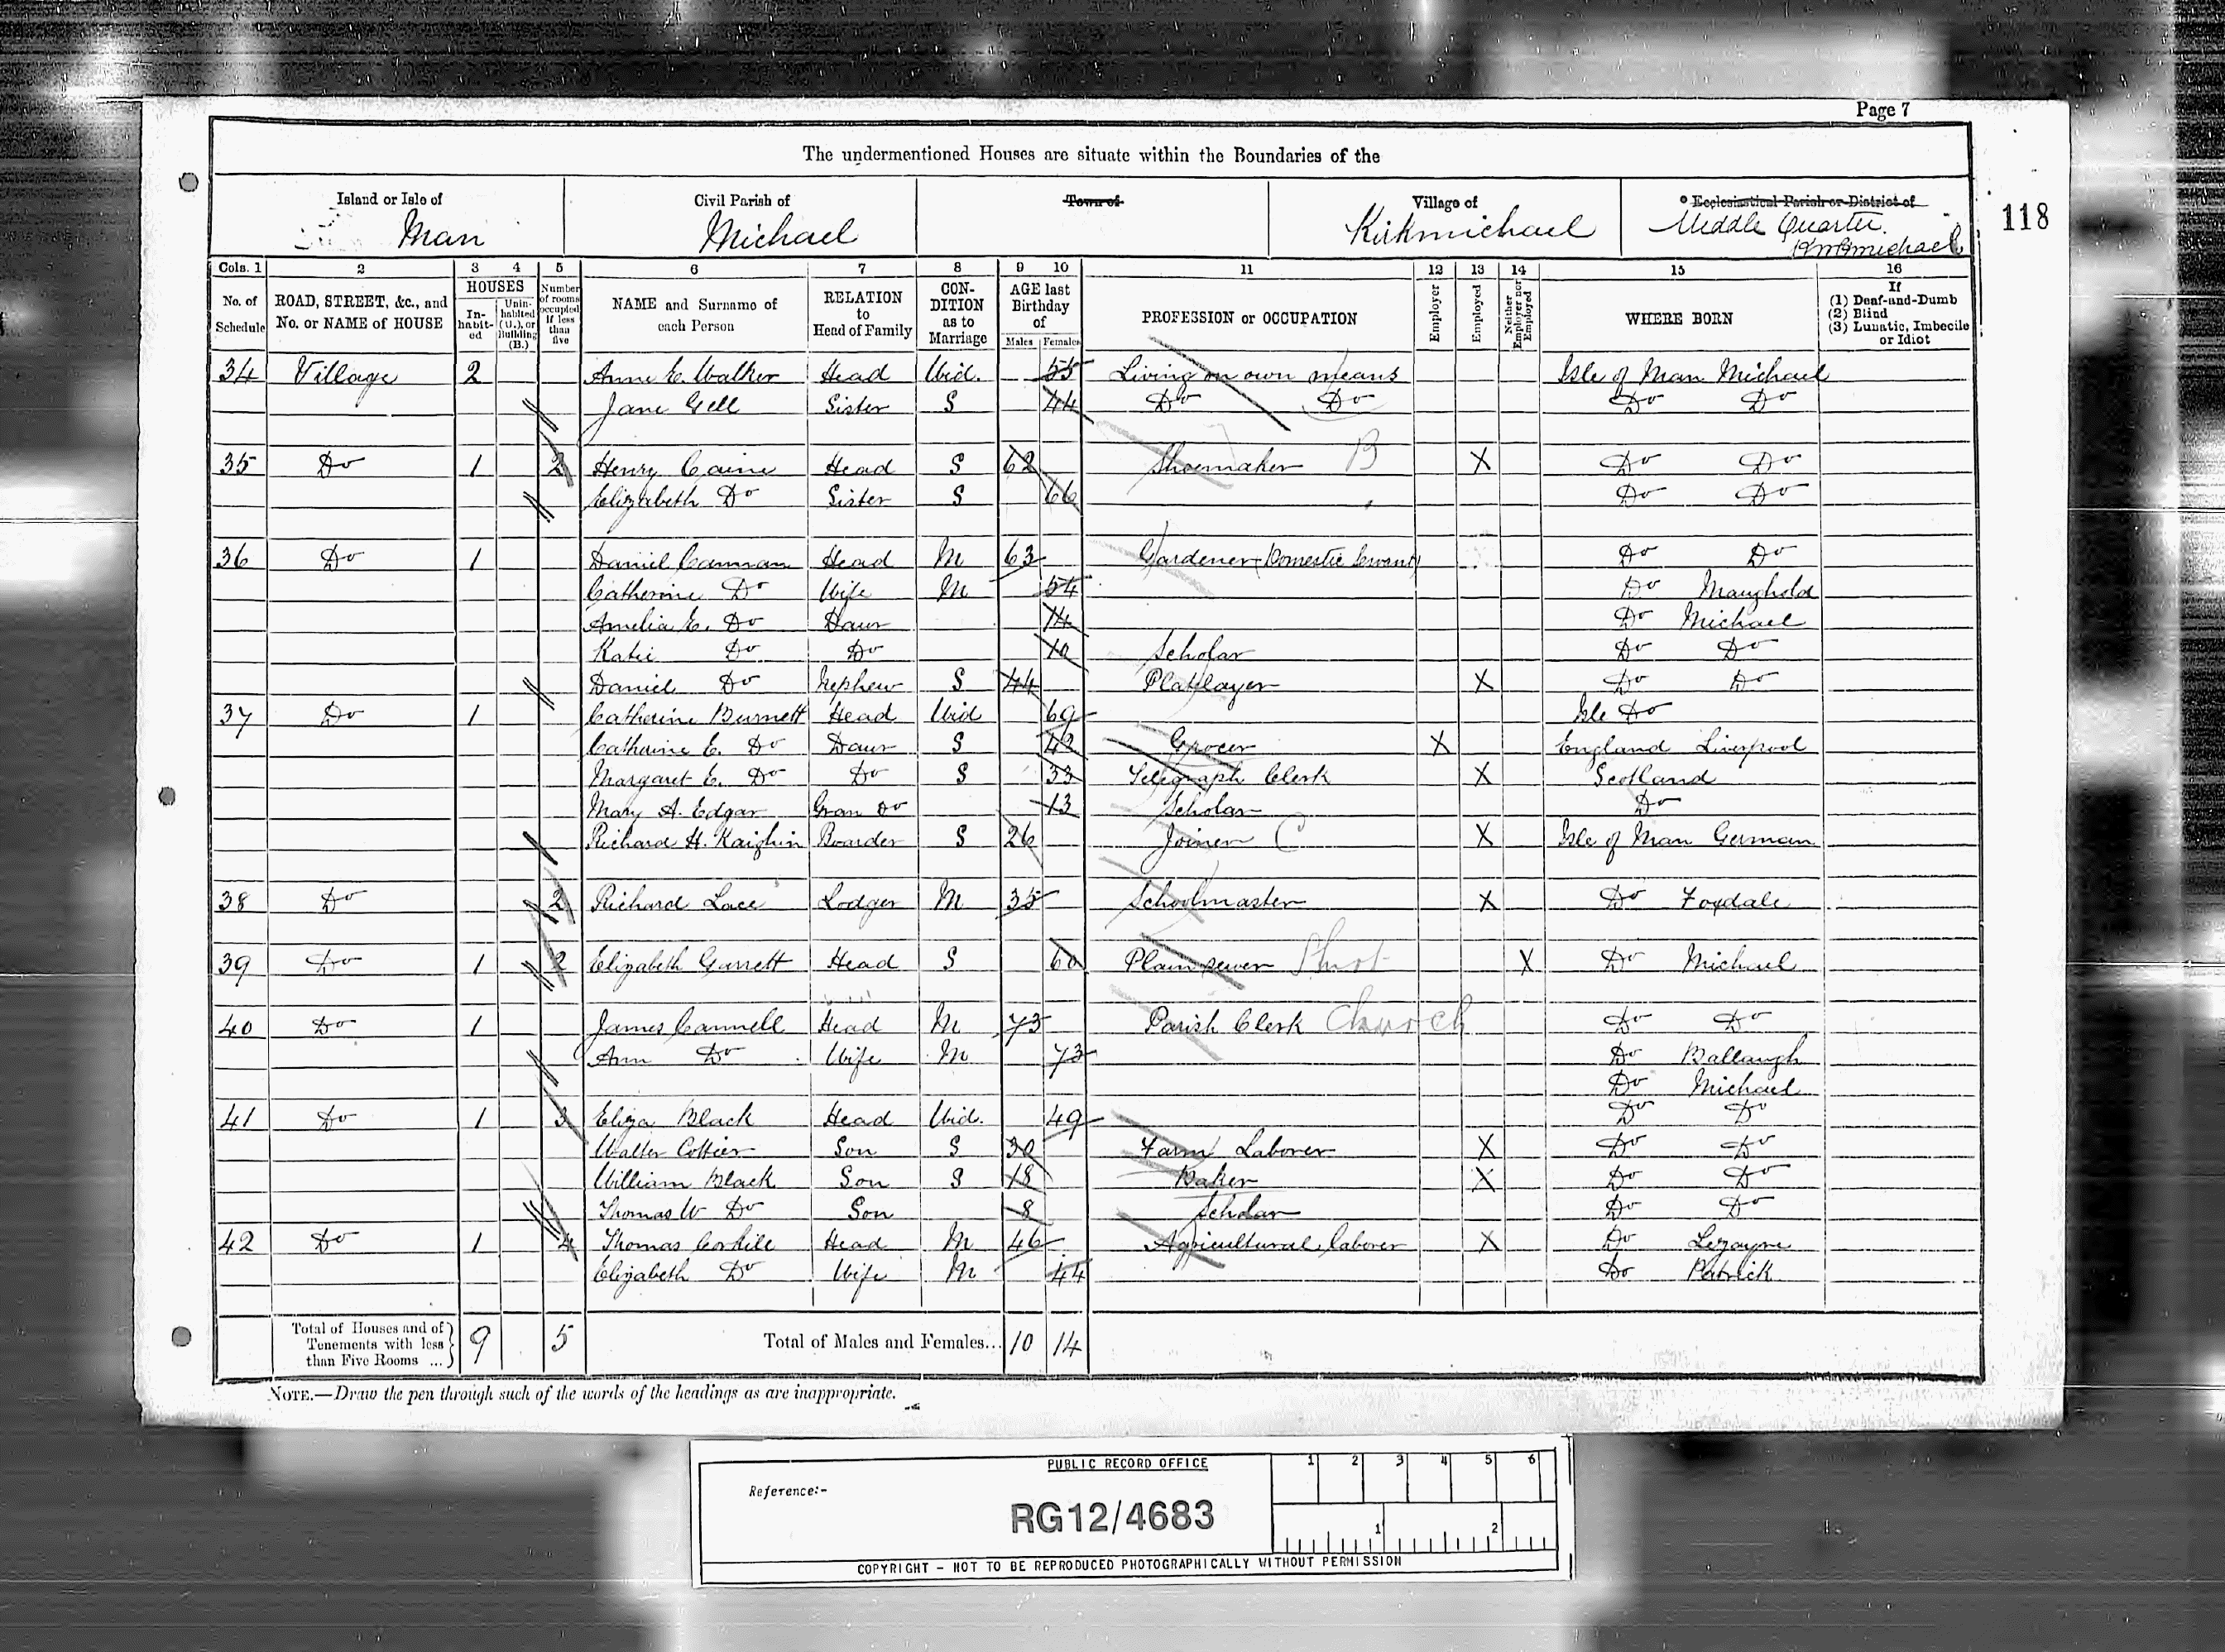 Page 7
The undermentioned Houses are situate within the Boundaries of the
Island or Isle of Civil Parish of Town of Village of Ecclesiastical Parish or District of
Man Michael Kirkmichael Middle Quarter. Kirkmichael
118
Cols. 1 2 3 4 5 6 7 8 9 10 11 12 13 14 15 16
No. of Schedule ROAD, STREET, &c., and No. or NAME of HOUSE HOUSES Inhabited Uninhabited (U.), or Building (B.) Number of rooms occupied if less than five NAME and Surname of each Person RELATION to Head of Family CONDITION as to Marriage AGE last Birthday of Males Females PROFESSION or OCCUPATION Employer Employed Neither Employer nor Employed WHERE BORN If (1) Deaf-and-Dumb (2) Blind (3) Lunatic, Imbecile or Idiot
34 Village 2 Anne E. Walker Head Wid. 55 Living on own means Isle of Man Michael
Jane Gell Sister S 44 Do Do Do Do
35 Do 1 2 Henry Caine Head S 62 Shoemaker B X Do Do
Elizabeth Do Sister S 66 Do Do
36 Do 1 Daniel Cannan Head M 63 Gardener (Domestic Servant) Do Do
Catherine Do Wife M 54 Do Maughold
Amelia E. Do Daur 14 Do Michael
Katie Do Do 10 Scholar Do Do
Daniel Do Nephew S 44 Platelayer X Do Do
37 Do 1 Catherine Burnett Head Wid 69 Isle Do
Catherine E. Do Daur S 42 Grocer X England Liverpool
Margaret E. Do Do S 33 Telegraph Clerk X Scotland
Mary A. Edgar Gran Do 13 Scholar Do
Richard H. Kaighin Boarder S 26 Joiner C X Isle of Man German
38 Do 2 Richard Lace Lodger M 35 Schoolmaster X Do Foxdale
39 Do 1 2 Elizabeth Garrett Head S 60 Plain sewer Shirt X Do Michael
40 Do 1 James Cannell Head M 73 Parish Clerk Church Do Do
Ann Do Wife M 73 Do Ballaugh
Do Michael
41 Do 1 3 Eliza Black Head Wid. 49 Do Do
Walter Cottier Son S 20 Farm Laborer X Do Do
William Black Son S 18 Baker X Do Do
Thomas W Do Son 8 Scholar Do Do
42 Do 1 4 Thomas Corkill Head M 46 Agricultural laborer X Do Lezayre
Elizabeth Do Wife M 44 Do Patrick
Total of Houses and of Tenements with less than Five Rooms ... 9 5 Total of Males and Females... 10 14
NOTE.—Draw the pen through such of the words of the headings as are inappropriate.
PUBLIC RECORD OFFICE
1 2 3 4 5 6
Reference:-
RG12/4683
1 2
COPYRIGHT - NOT TO BE REPRODUCED PHOTOGRAPHICALLY WITHOUT PERMISSION